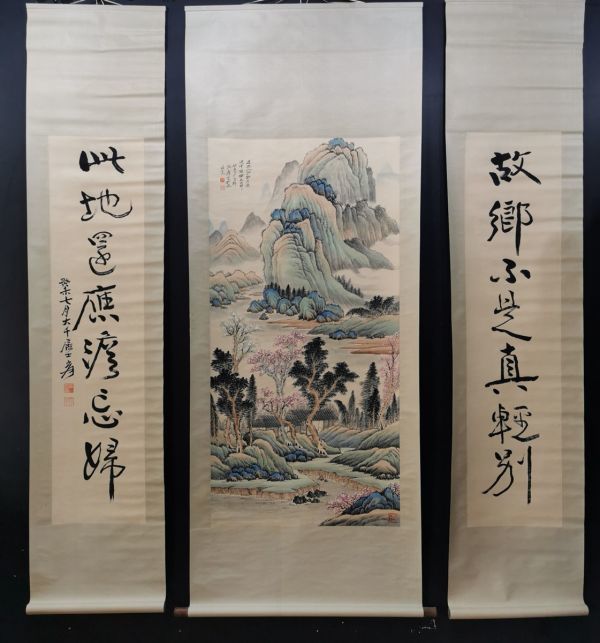 故鄉不是真輕別
此地還應澹忘歸
癸未七月大千居士爰